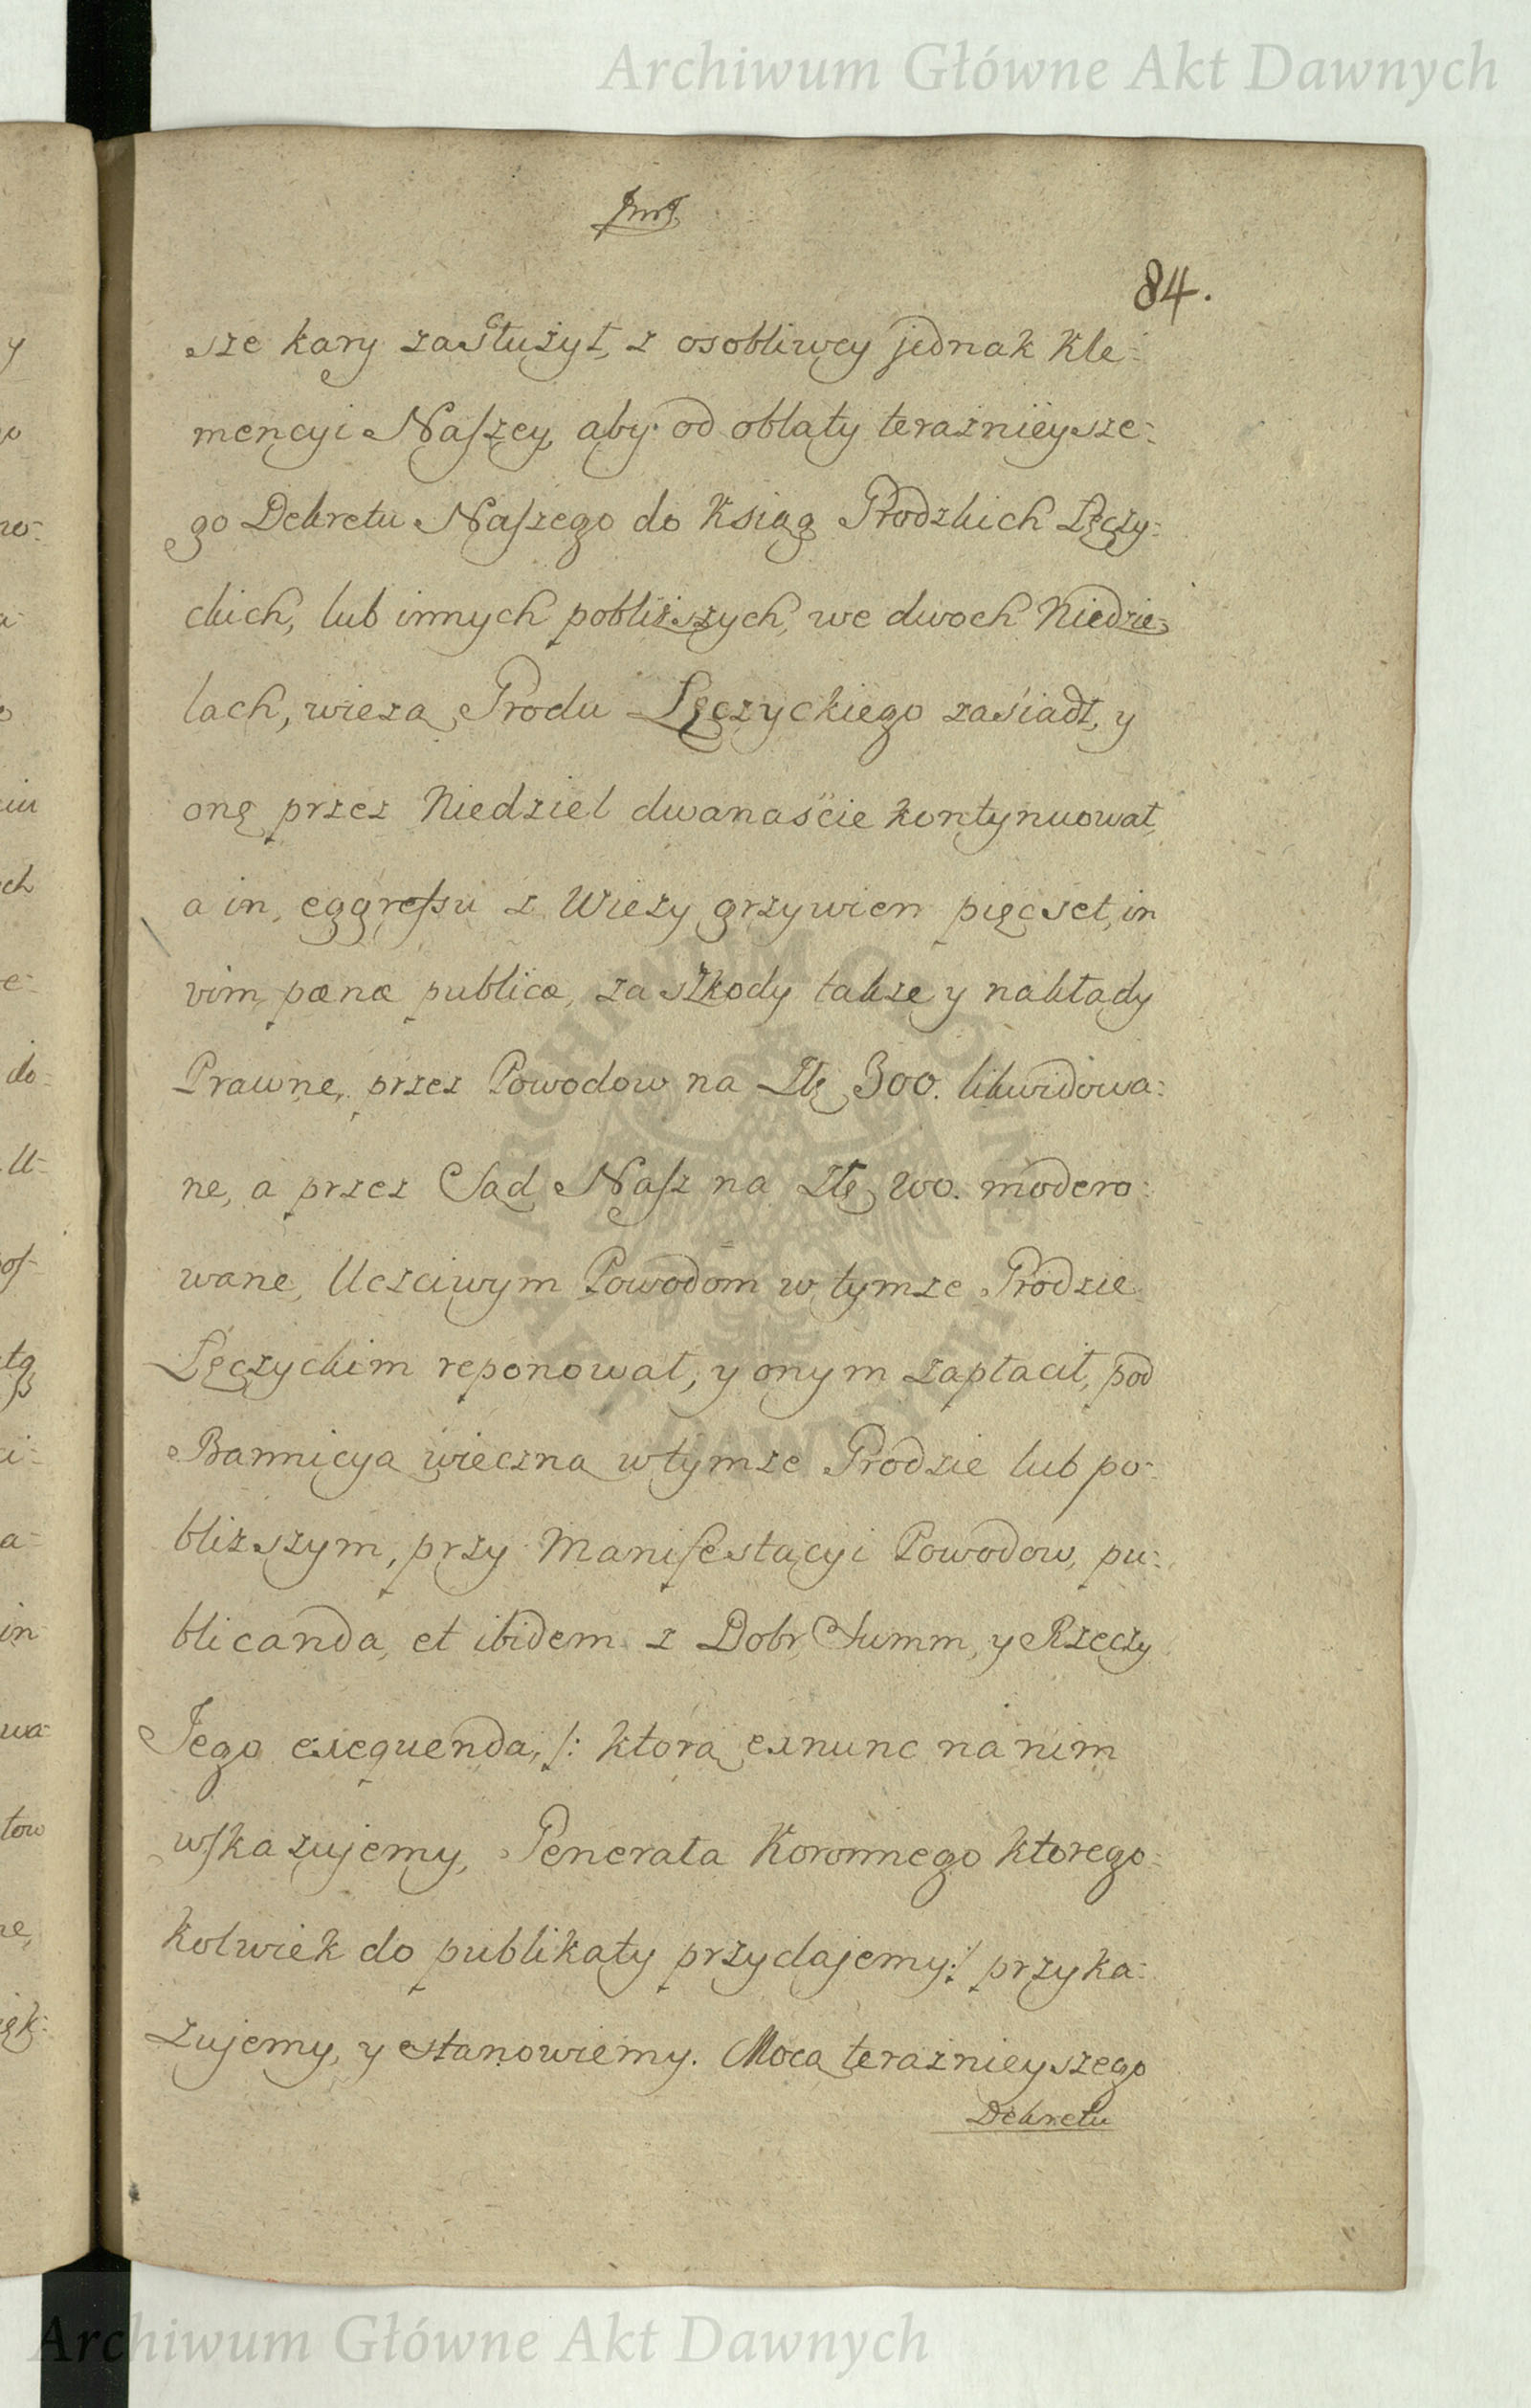 Archiwum Główne Akt Dawnych
84.
sze kary zasłużył, z osobliwey jednak Kle=
mencyi Naszey, aby od oblaty teraznieysze=
go Dekretu Naszego do Ksiąg Grodzkich Lęczy=
ckich, lub innych pobliższych, we dwoch Niedzie=
lach, wieżą Grodu Lęczyckiego zasiadł, y
onę przez Niedziel dwanaście kontynuował,
a in eggressu z Wieży grzywien pięcset, in
vim pænæ publicæ, za szkody takze y nakłady
Prawne, przez Powodow na Złł 300. likwidowa=
ne, a przez Sąd Nasz na Złł 200. modero=
wane, Uczciwym Powodom w tymze Grodzie
Lęczyckim reponował, y onym zapłacił, pod
Bannicyą wieczną w tymze Grodzie lub po=
bliższym, przy Manifestacyi Powodow, pu=
blicanda, et ibidem z Dobr, Summ, y Rzeczy
Jego exequenda, /: ktorą exnunc na nim
wskazujemy, Generała Koronnego ktorego=
kolwiek do publikaty przydajemy :/ przyka=
zujemy, y stanowiemy. Mocą teraznieyszego
Dekretu
ARCHIWUM GŁÓWNE AKT DAWNYCH
Archiwum Główne Akt Dawnych